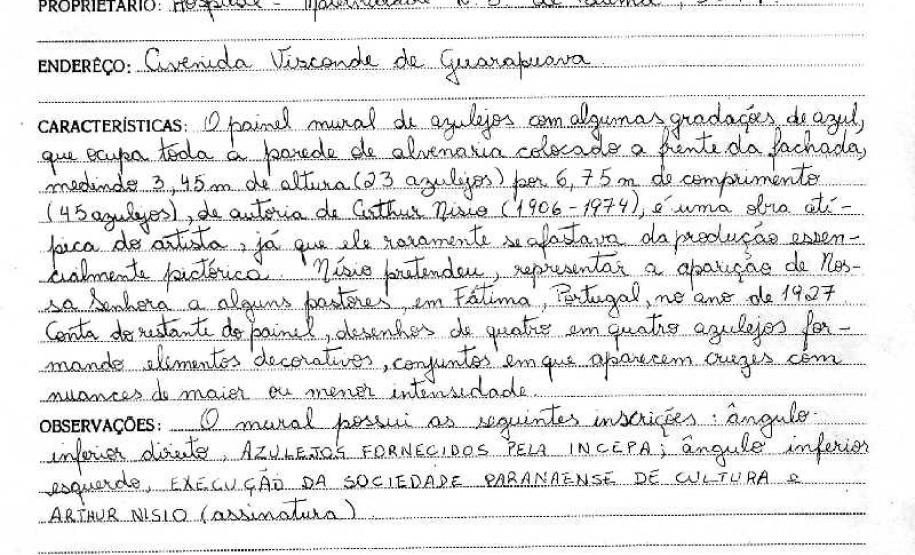 PROPRIETÁRIO: Hospital - Maternidade N.S. de Fátima,
ENDERÊÇO: Avenida Visconde de Guarapuava
CARACTERÍSTICAS: O painel mural de azulejos com algumas gradações de azul,
que ocupa toda a parede de alvenaria colocado a frente da fachada,
medindo 3,45m de altura (23 azulejos) por 6,75m de comprimento
(45 azulejos), de autoria de Arthur Nisio (1906-1974), é uma obra atí-
pica do artista, já que ele raramente se afastava da produção essen-
cialmente pictórica. Nísio pretendeu, representar a aparição de Nos-
sa Senhora a alguns pastores, em Fátima, Portugal, no ano de 1927.
Conta do restante do painel, desenhos de quatro em quatro azulejos for-
mando elementos decorativos, conjuntos em que aparecem cruzes com
nuances de maior ou menor intensidade.
OBSERVAÇÕES: O mural possui as seguintes inscrições: ângulo
inferior direito, AZULEJOS FORNECIDOS PELA INCEPA; ângulo inferior
esquerdo, EXECUÇÃO DA SOCIEDADE PARANAENSE DE CULTURA e
ARTHUR NISIO (assinatura).